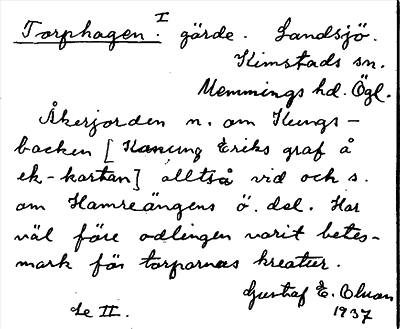 Torphagen. I gärde. Landsjö.
Kimstads sn.
Memmings hd. Ögl.
Åkerjorden n. om Kungs-
backen [Konung Eriks graf å
ek-kartan] alltså vid och s.
om Hamreängens ö. del. Har
väl före odlingen varit betes-
mark för torparnas kreatur.
Gustaf E. Olsson
Se II. 1937